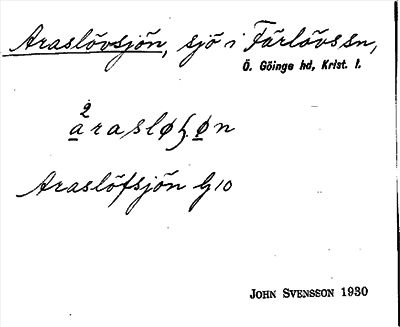 Araslövsjön, sjö i Färlövs sn,
Ö. Göinge hd, Krist. l.
2
arasløʃøn
Araslöfsjön G10
JOHN SVENSSON 1930